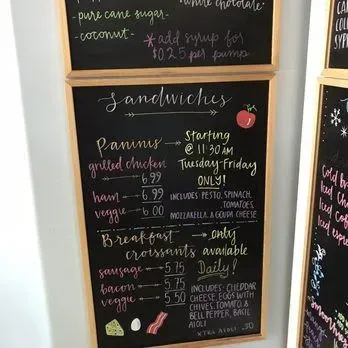 - pure cane sugar-
- coconut-
white chocolate-
*add syrup for
$0.25 per pump
Sandwiches
Paninis
Starting
@ 11:30AM
Tuesday-Friday
ONLY!
grilled chicken
6.99
ham 6.99
veggie 6.00
INCLUDES: PESTO, SPINACH,
TOMATOES,
MOZZARELLA, & GOUDA CHEESE
Breakfast
croissants
only
available
Daily!
sausage 5.75
bacon 5.75
veggie 5.50
INCLUDES: CHEDDAR
CHEESE, EGGS WITH
CHIVES, TOMATO, &
BELL PEPPER, BASIL
AIOLI
XTRA AIOLI .30
Cold
Iced
Iced
Iced